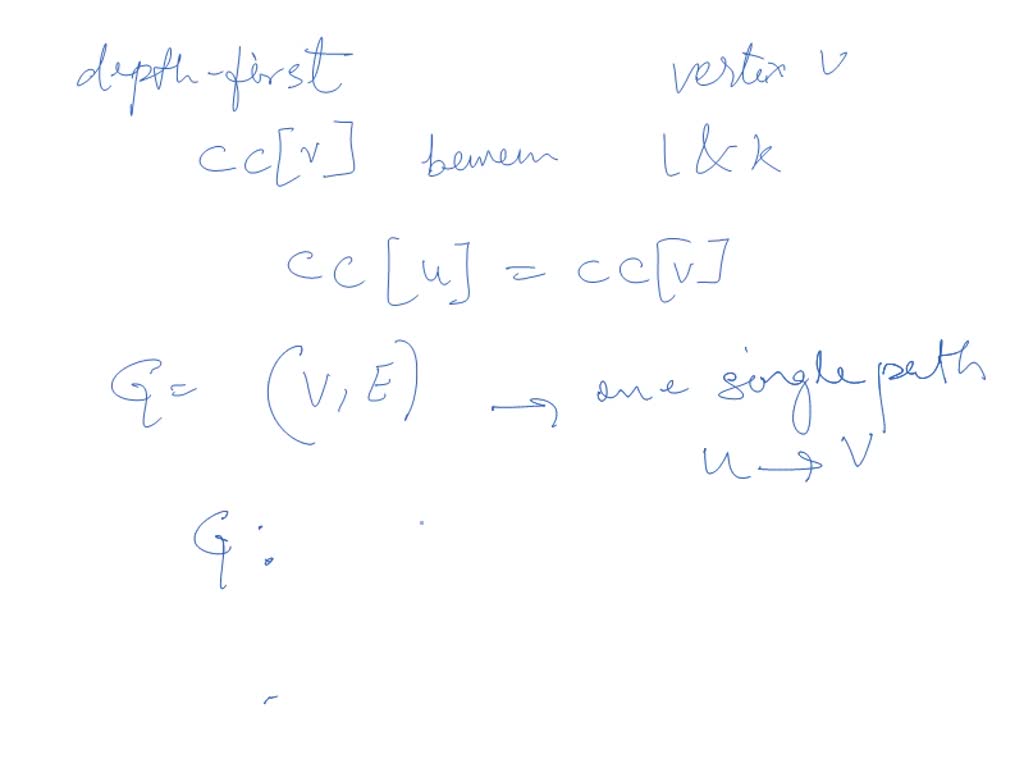 depth-first vertex v
CC[v] between 1 & k
CC[u] = CC[v]
G = (V, E) → one single path
u → v
G :